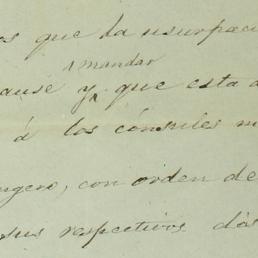 os que la usurpaci
mandar
ause y que esta
á los cónsules
ngero, con orden de
sus respectivos